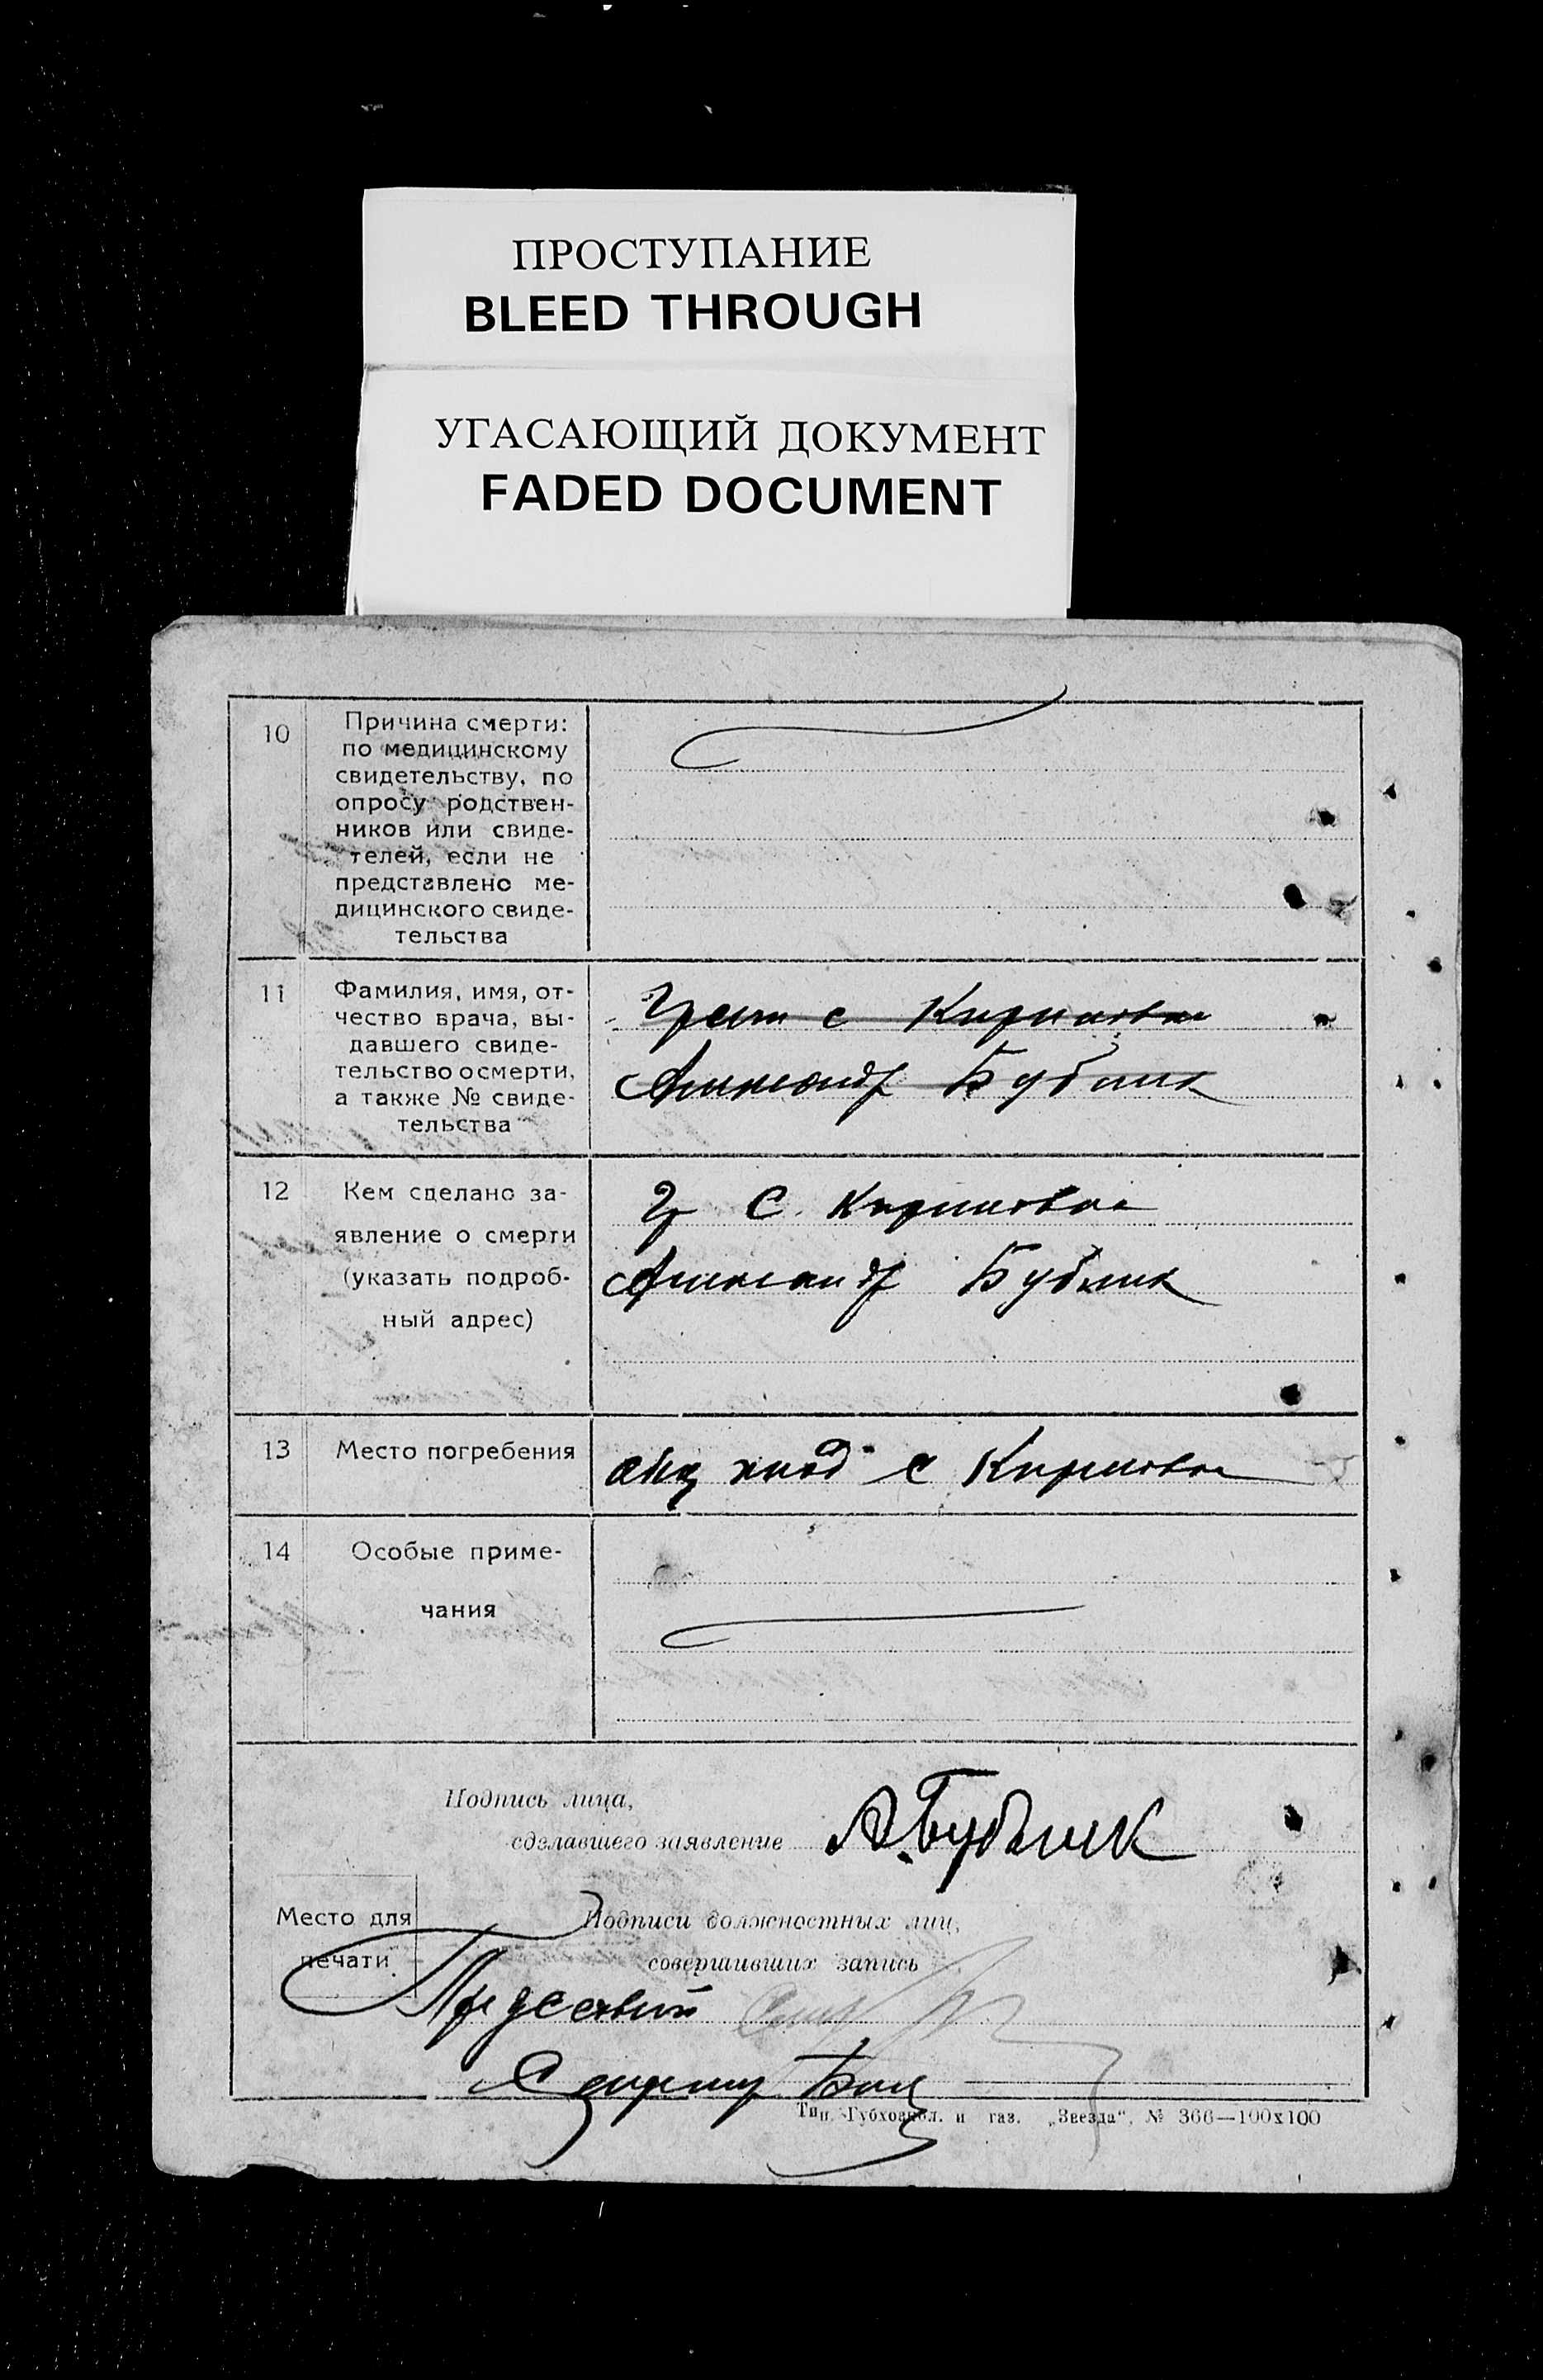 ПРОСТУПАНИЕ
BLEED THROUGH
УГАСАЮЩИЙ ДОКУМЕНТ
FADED DOCUMENT
10 Причина смерти:
по медицинскому
свидетельству, по
опросу родствен-
ников или свиде-
телей, если не
представлено ме-
дицинского свиде-
тельства
11 Фамилия, имя, от-
чество врача, вы-
давшего свиде-
тельство о смерти,
а также № свиде-
тельства
с Кириловка
Александр Бублик
12 Кем сделано за-
явление о смерти
(указать подроб-
ный адрес)
Гр С. Кириловка
Александр Бублик
13 Место погребения
с Кириловка
14 Особые приме-
чания
Подпись лица,
сделавшего заявление А. Бублик
Место для
печати
Подписи должностных лиц,
совершивших запись
Тип. Губхозпол. и газ. „Звезда“, № 366—100x100